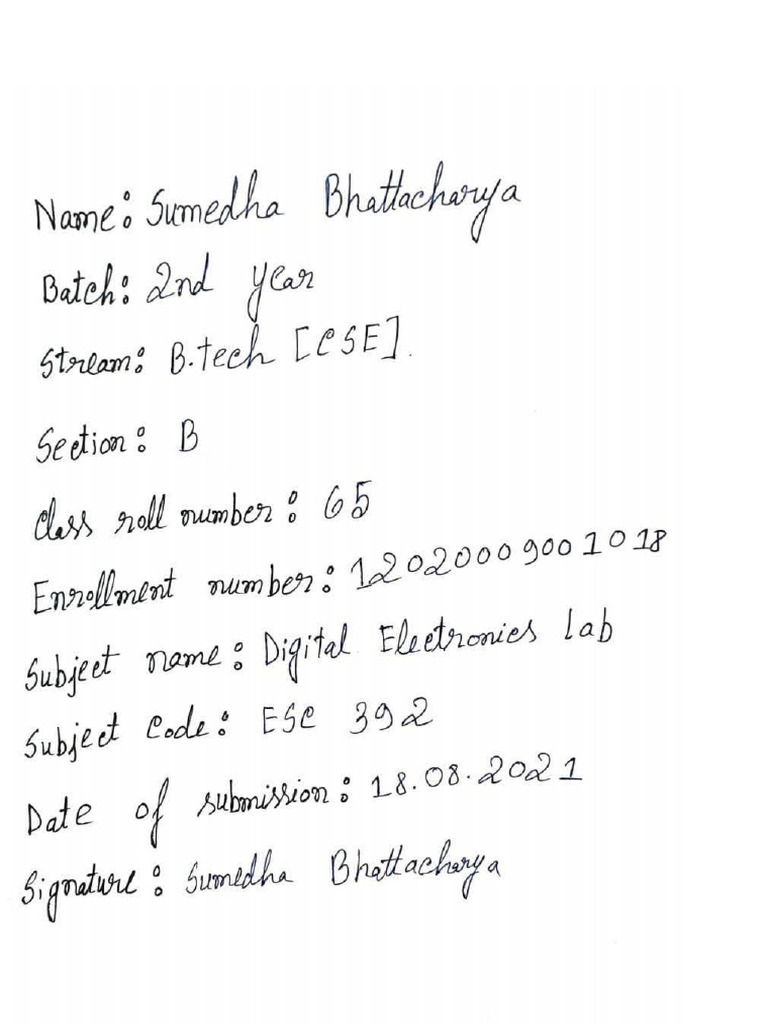 Name: Sumedha Bhattacharya
Batch: 2nd year
Stream: B.tech [CSE].
Section: B
Class roll number: 65
Enrollment number: 12020009001018
Subject name: Digital Electronics lab
Subject Code: ESC 392
Date of submission: 18.08.2021
Signature: Sumedha Bhattacharya